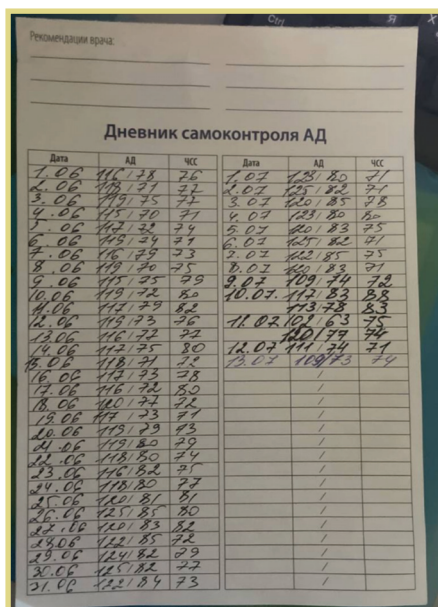 Ctrl
Я
Рекомендации врача:
Дневник самоконтроля АД
Дата АД ЧСС
1.06 116/78 76
2.06 118/71 77
3.06 119/75 77
4.06 115/70 71
5.06 117/72 74
6.06 119/74 71
7.06 116/79 73
8.06 119/70 75
9.06 115/75 79
10.06 119/72 80
11.06 117/79 82
12.06 119/73 76
13.06 116/72 77
14.06 117/75 80
15.06 118/71 72
16.06 117/73 78
17.06 116/72 80
18.06 120/77 72
19.06 117/73 71
20.06 119/79 93
21.06 119/80 79
22.06 118/80 74
23.06 116/82 75
24.06 118/80 77
25.06 120/81 81
26.06 125/85 80
27.06 120/83 82
28.06 122/85 72
29.06 124/82 79
30.06 125/82 77
31.06 122/84 73
Дата АД ЧСС
1.07 123/80 71
2.07 125/82 71
3.07 120/85 78
4.07 123/80 80
5.07 120/83 75
6.07 125/82 71
7.07 122/85 75
8.07 120/83 71
9.07 109/74 72
10.07. 117/83 88
113/78 83
11.07 102/63 75
120/77 74
12.07 111/74 71
13.07 109/73 74